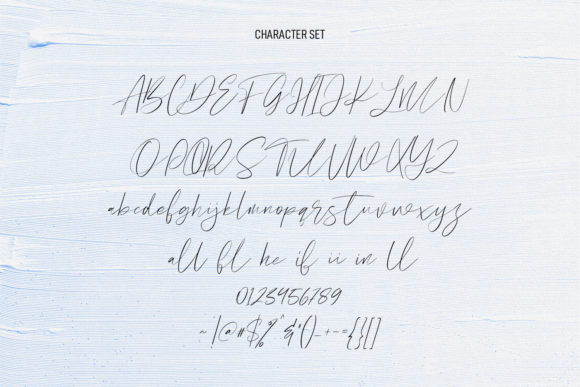 CHARACTER SET
ABCDEFGHIJKLMN
OPQRSTUVWXYZ
abcdefghijklmnopqrstuvwxyz
all fl he if ii in ll
0123456789
~!@#$%^&*()_+-={}[]